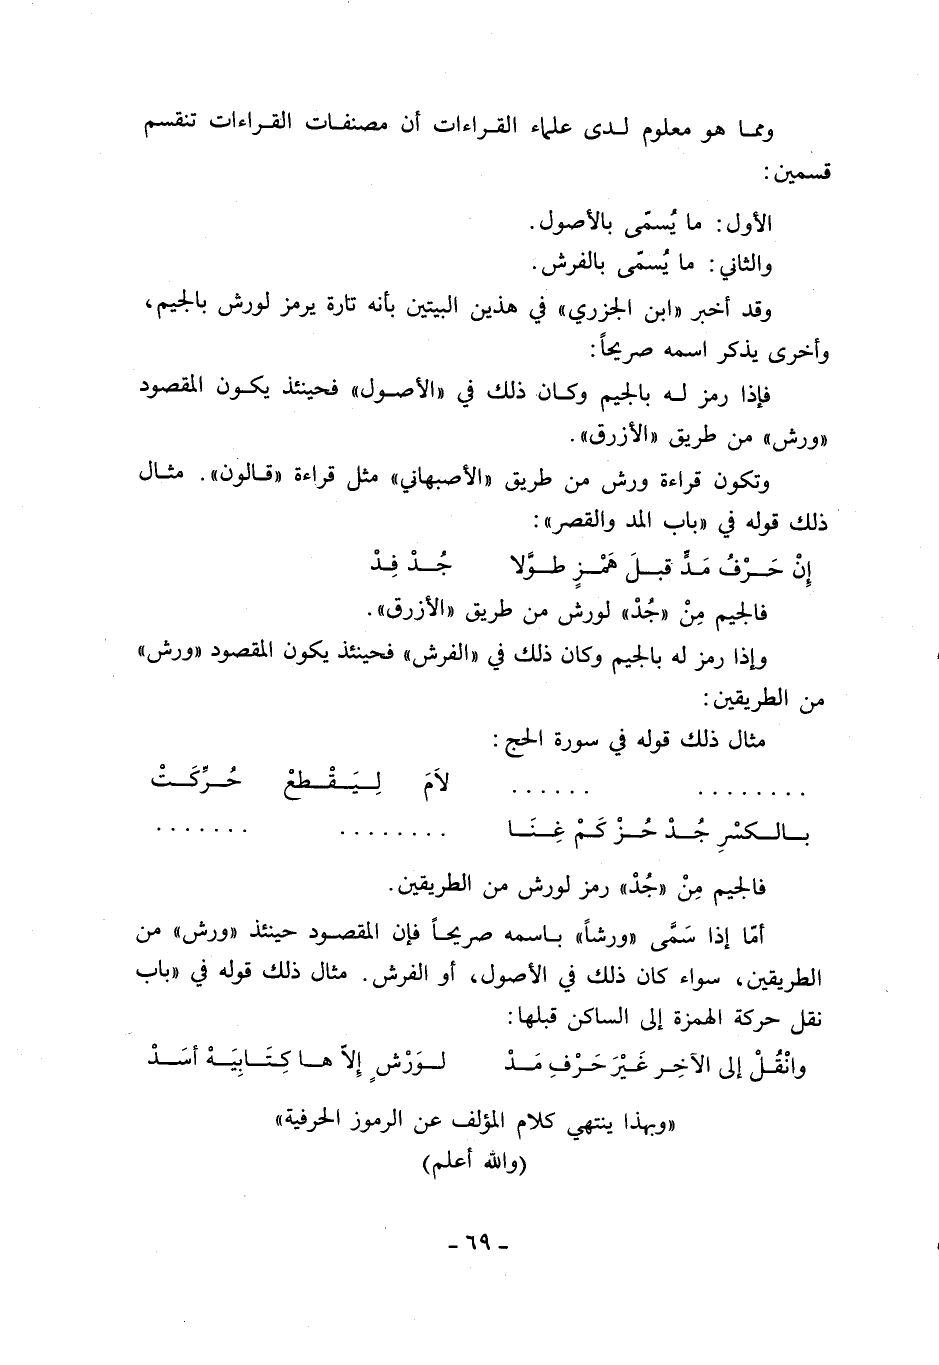 ومما هو معلوم لدى علماء القراءات أن مصنفات القراءات تنقسم
قسمين:
الأول: ما يُسمّى بالأصول.
والثاني: ما يُسمّى بالفرش.
وقد أخبر «ابن الجزري» في هذين البيتين بأنه تارة يرمز لورش بالجيم،
وأخرى يذكر اسمه صريحاً:
فإذا رمز له بالجيم وكان ذلك في «الأصول» فحينئذ يكون المقصود
«ورش» من طريق «الأزرق».
وتكون قراءة ورش من طريق «الأصبهاني» مثل قراءة «قالون». مثال
ذلك قوله في «باب المد والقصر»:
إِنْ حَرْفُ مَدٍّ قبلَ هَمْزٍ طوَّلا جُدْ فِدْ
فالجيم مِنْ «جُدْ» لورش من طريق «الأزرق».
وإذا رمز له بالجيم وكان ذلك في «الفرش» فحينئذ يكون المقصود «ورش»
من الطريقين:
مثال ذلك قوله في سورة الحج:
........ ...... لاَمَ لِيَقْطعْ حُرِّكَتْ
بالكسْرِ جُدْ حُزْ كَمْ غِنَا ........ .......
فالجيم مِنْ «جُدْ» رمز لورش من الطريقين.
أمّا إذا سَمَّى «ورشاً» باسمه صريحاً فإن المقصود حينئذ «ورش» من
الطريقين، سواء كان ذلك في الأصول، أو الفرش. مثال ذلك قوله في «باب
نقل حركة الهمزة إلى الساكن قبلها:
وانْقُلْ إلى الآخِر غَيْرَ حَرْفِ مَدْ لورْشٍ إلاّ ها كِتَابِيَهْ أسَدْ
«وبهذا ينتهي كلام المؤلف عن الرموز الحرفية»
(والله أعلم)
- ٦٩ -